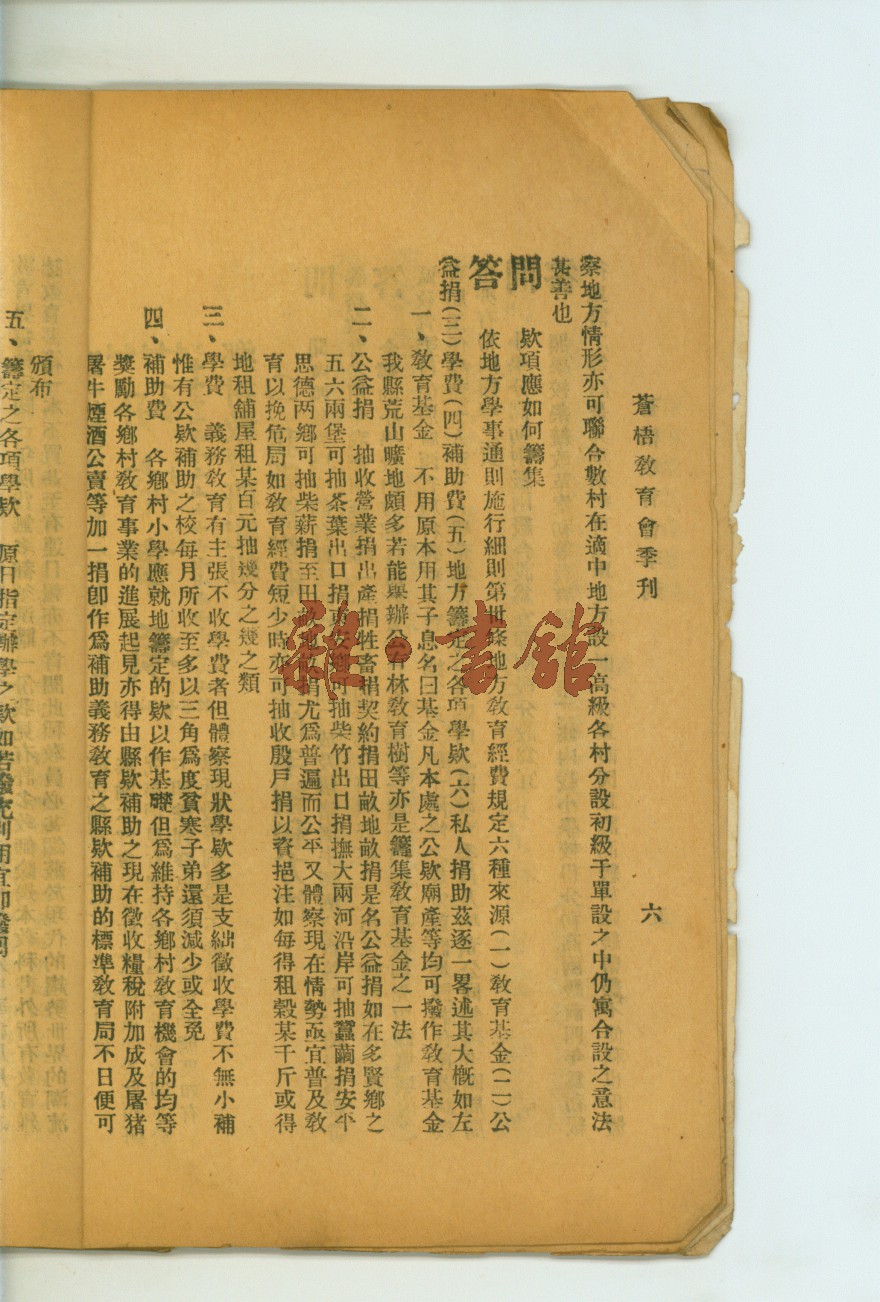 蒼梧敎育會季刊
六
察地方情形亦可聯合數村在適中地方設一高級各村分設初級于單設之中仍寓合設之意法
甚善也
問 欵項應如何籌集
答 依地方學事通則施行細則第卅條地方敎育經費規定六種來源(一)敎育基金(二)公
益捐(三)學費(四)補助費(五)地方籌定之各項學欵(六)私人捐助茲逐一畧述其大概如左
一、敎育基金 不用原本用其子息名曰基金凡本處之公欵廟產等均可撥作敎育基金
我縣荒山曠地頗多若能舉辦公有林敎育樹等亦是籌集敎育基金之一法
二、公益捐 抽收營業捐出產捐牲畜捐契約捐田畝地畝捐是名公益捐如在多賢鄉之
五六兩堡可抽茶葉出口捐東安鄉可抽柴竹出口捐撫大兩河沿岸可抽蠶繭捐安平
思德两鄉可抽柴薪捐至田畝地畝捐尤爲普遍而公平又體察現在情勢亟宜普及敎
育以挽危局如敎育經費短少時亦可抽收殷戶捐以資挹注如每得租穀某千斤或得
地租舖屋租某百元抽幾分之幾之類
三、學費 義務敎育有主張不收學費者但體察現狀學欵多是支絀徵收學費不無小補
惟有公欵補助之校每月所收至多以三角爲度貧寒子弟還須減少或全免
四、補助費 各鄉村小學應就地籌定的欵以作基礎但爲維持各鄉村敎育機會的均等
獎勵各鄉村敎育事業的進展起見亦得由縣欵補助之現在徵收糧稅附加成及屠猪
屠牛煙酒公賣等加一捐卽作爲補助義務敎育之縣欵補助的標準敎育局不日便可
頒布
五、籌定之各項學欵 原日指定辦學之欵如若撥充別用宜卽撥回
雜·書館